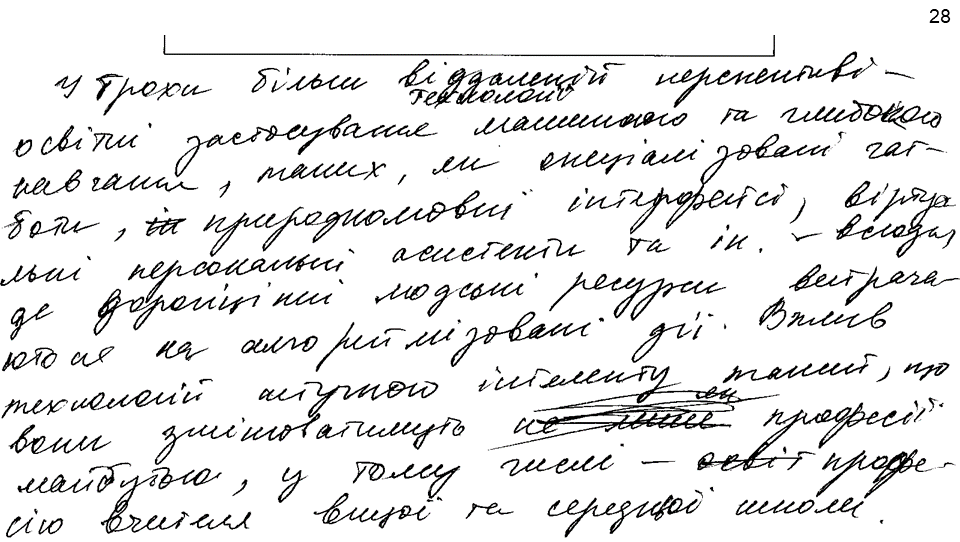 28
У трохи більш віддаленій перспективі –
технології
освітні застосування машинного та глибокого
навчання, таких, як спеціалізовані чат-
боти, ін природномовні інтерфейси, віртуа
льні персональні асистенти та ін. – всюди,
де дороцінні людські ресурси витрача-
ються на алгоритмізовані дії. Вплив
технологій штучного інтелекту такий, що
вони змінюватимуть не лише як професії
майбутнього, у тому числі – освіт профе-
сію вчителя вищої та середньої школи.